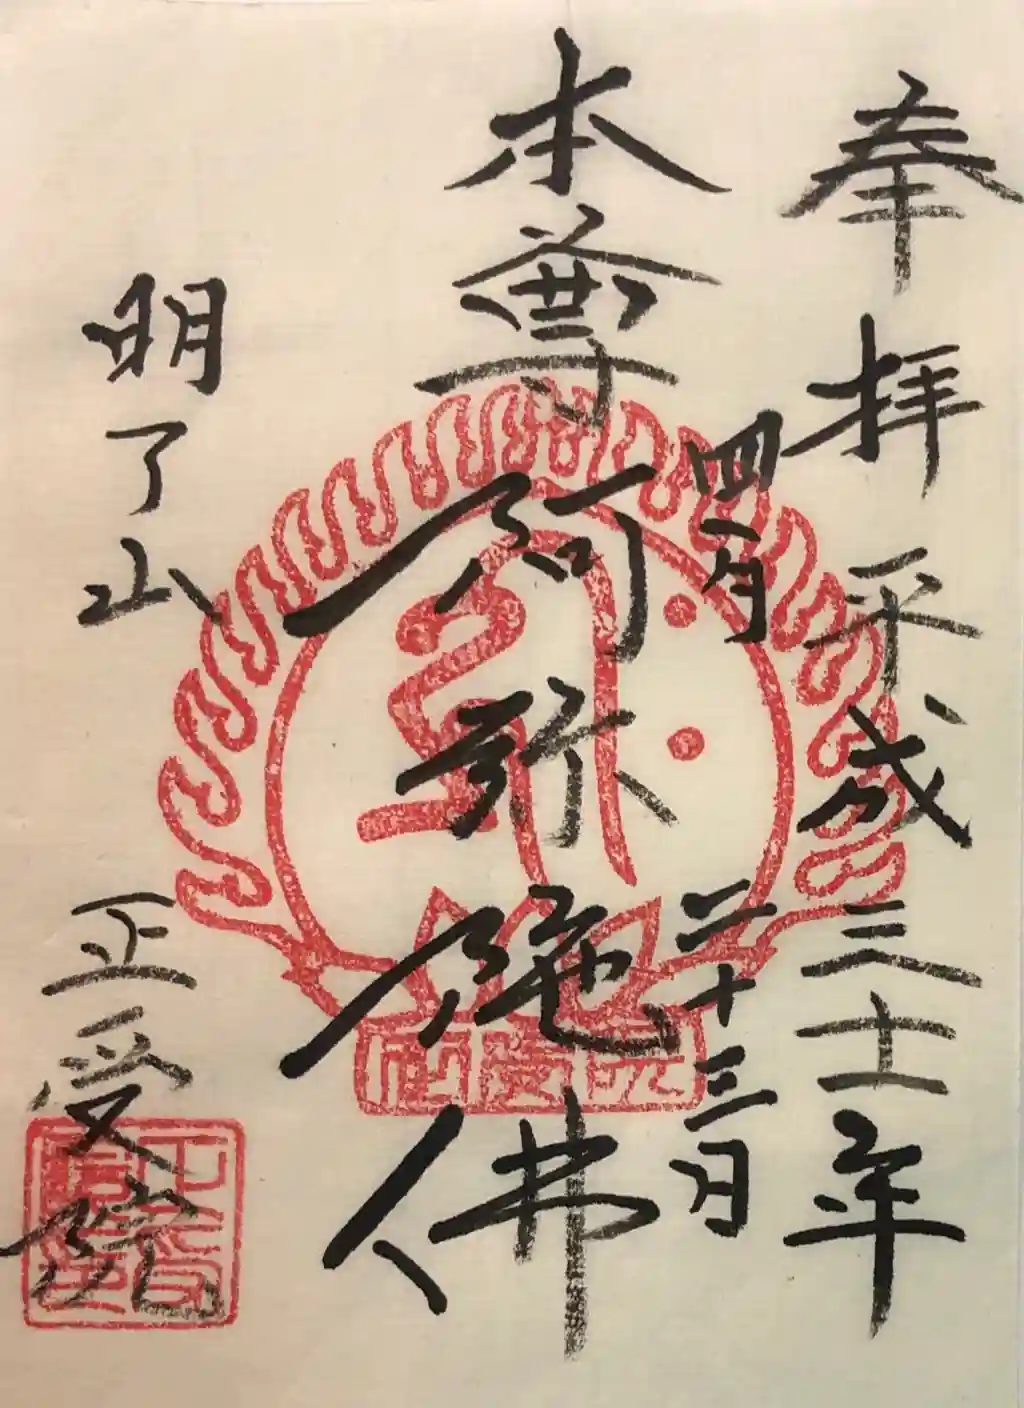 奉拝 平成三十一年
四月二十三日
本尊 阿弥陀佛
明了山 正受院
正受院